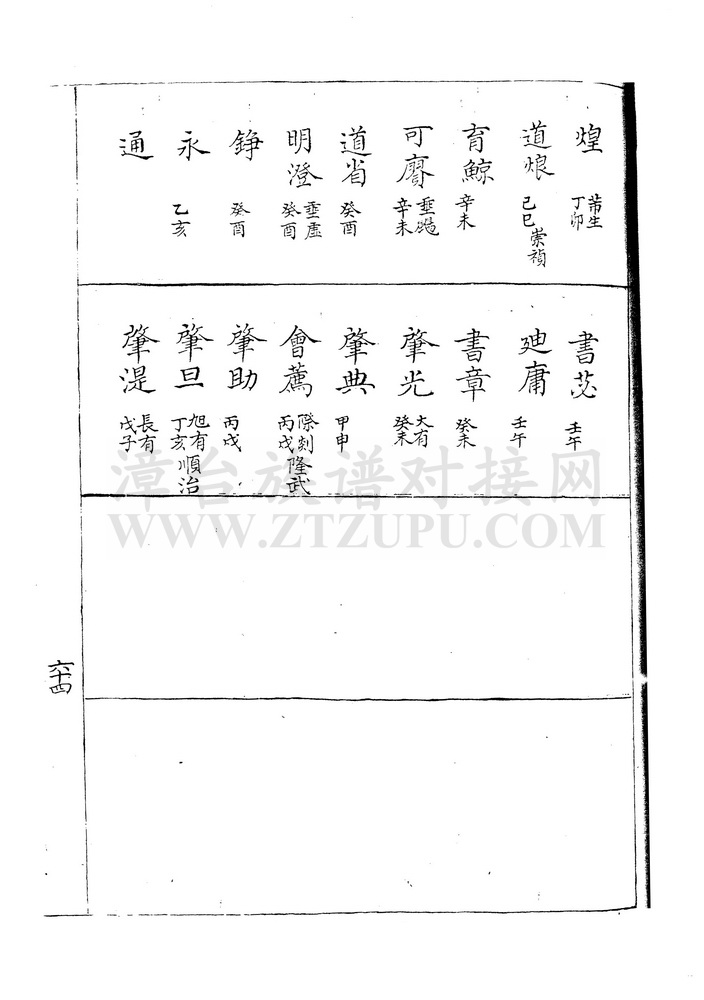 煌 芾生 丁卯
道烺 己巳 崇禎
育鯨 辛未
可賡 垂颺 辛未
道省 癸酉
明澄 垂虛 癸酉
錚 癸酉
永 乙亥
通
書苾 壬午
廸庸 壬午
書章 癸未
肇光 大有 癸未
肇典 甲申
會薦 際剡 丙戌 隆武
肇助 丙戌
肇旦 旭有 丁亥 順治
肇湜 長有 戊子
六十四
漳台族谱对接网
WWW.ZTZUPU.COM